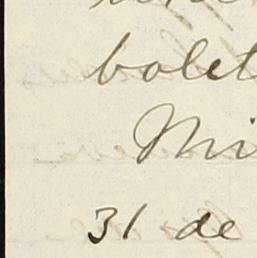 bolet
Mi
31 de